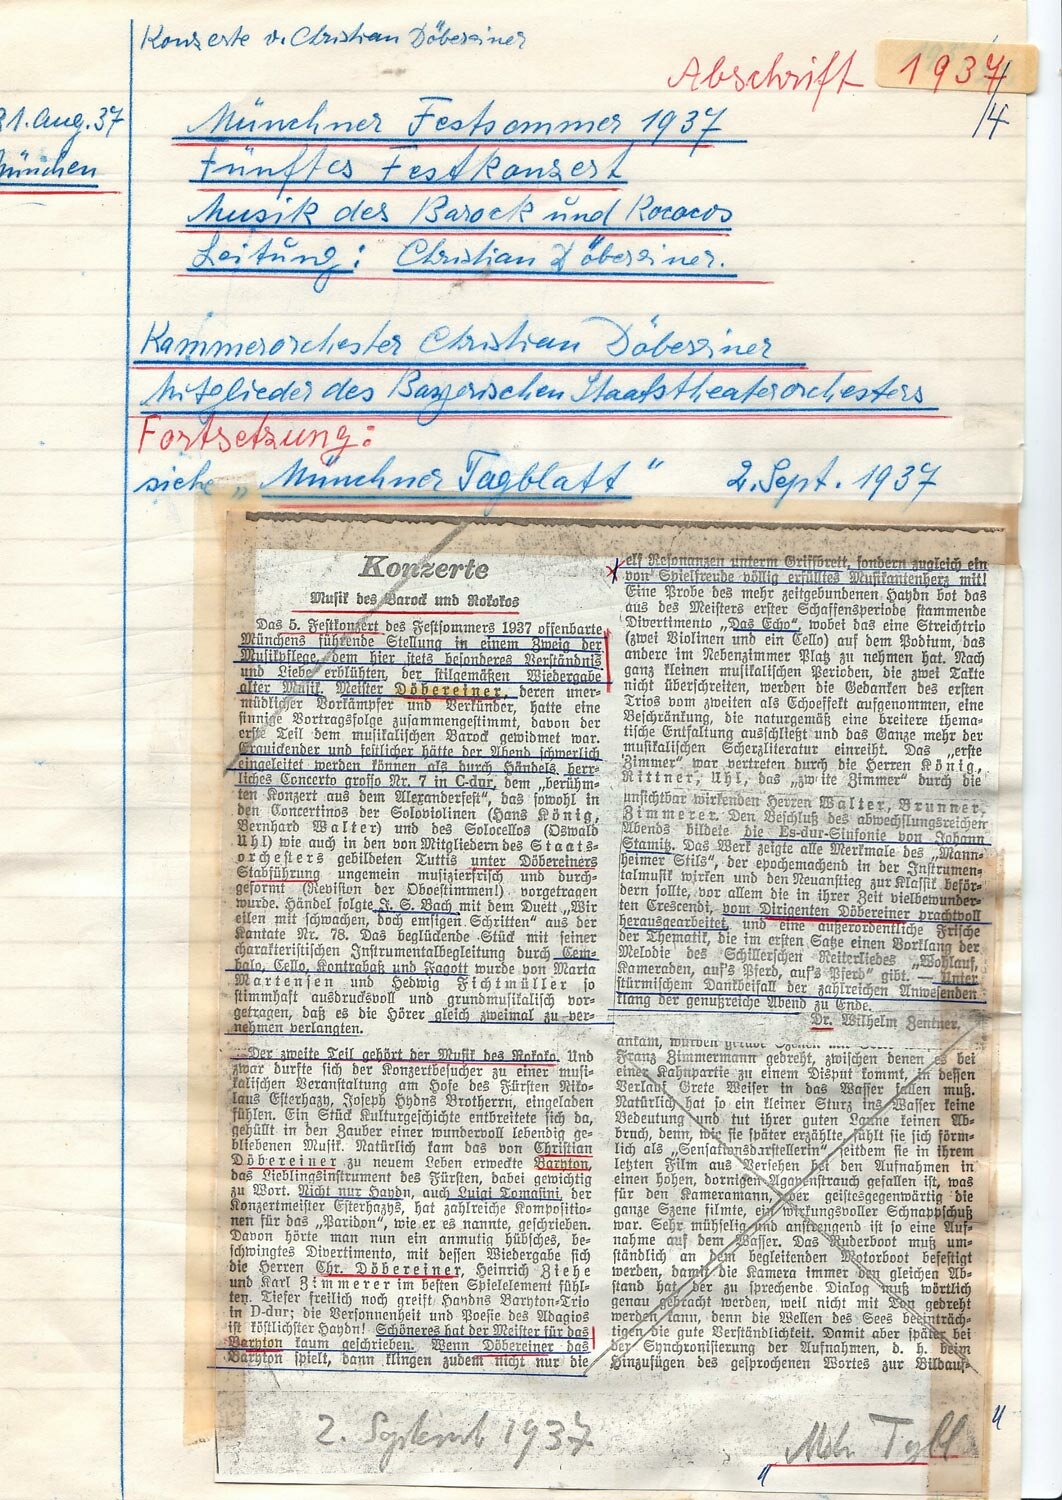 Konzerte v. Christian Döbereiner
Abschrift 1937
/4
31. Aug. 37
München
Münchner Festsommer 1937
Fünftes Festkonzert
Musik des Barock und Rococos
Leitung: Christian Döbereiner.
Kammerorchester Christian Döbereiner
Mitglieder des Bayerischen Staatstheaterorchesters
Fortsetzung:
siehe „Münchner Tagblatt" 2. Sept. 1937
Konzerte
Musik des Barock und Rokokos
Das 5. Festkonzert des Festsommers 1937 offenbarte
Münchens führende Stellung in einem Zweig der
Musikpflege, dem hier stets besonderes Verständnis
und Liebe erblühten, der stilgemäßen Wiedergabe
alter Musik. Meister Döbereiner, deren uner-
müdlicher Vorkämpfer und Verkünder, hatte eine
sinnige Vortragsfolge zusammengestimmt, davon der
erste Teil dem musikalischen Barock gewidmet war.
Erquickender und festlicher hätte der Abend schwerlich
eingeleitet werden können als durch Händels herr-
liches Concerto grosso Nr. 7 in C-dur, dem „berühm-
ten Konzert aus dem Alexanderfest", das sowohl in
den Concertinos der Soloviolinen (Hans König,
Bernhard Walter) und des Solocellos (Oswald
Uhl) wie auch in den von Mitgliedern des Staats-
orchesters gebildeten Tuttis unter Döbereiners
Stabführung ungemein musizierfrisch und durch-
geformt (Revision der Oboestimmen!) vorgetragen
wurde. Händel folgte J. S. Bach mit dem Duett „Wir
eilen mit schwachen, doch emsigen Schritten" aus der
Kantate Nr. 78. Das beglückende Stück mit seiner
charakteristischen Instrumentalbegleitung durch Cem-
balo, Cello, Kontrabaß und Fagott wurde von Marta
Martensen und Hedwig Fichtmüller so
stimmhaft ausdrucksvoll und grundmusikalisch vor-
getragen, daß es die Hörer gleich zweimal zu ver-
nehmen verlangten.
Der zweite Teil gehört der Musik des Rokoko. Und
zwar durfte sich der Konzertbesucher zu einer musi-
kalischen Veranstaltung am Hofe des Fürsten Niko-
laus Esterhazy, Joseph Hydns Brotherrn, eingeladen
fühlen. Ein Stück Kulturgeschichte entbreitete sich da,
gehüllt in den Zauber einer wundervoll lebendig ge-
bliebenen Musik. Natürlich kam das von Christian
Döbereiner zu neuem Leben erweckte Baryton,
das Lieblingsinstrument des Fürsten, dabei gewichtig
zu Wort. Nicht nur Haydn, auch Luigi Tomasini, der
Konzertmeister Esterhazys, hat zahlreiche Kompositio-
nen für das „Paridon", wie er es nannte, geschrieben.
Davon hörte man nun ein anmutig hübsches, be-
schwingtes Divertimento, mit dessen Wiedergabe sich
die Herren Chr. Döbereiner, Heinrich Ziehe
und Karl Zimmerer im besten Spielelement fühl-
ten. Tiefer freilich noch greift Haydns Baryton-Trio
in D-dur; die Versonnenheit und Poesie des Adagios
ist köstlichster Haydn! Schöneres hat der Meister für das
Baryton kaum geschrieben. Wenn Döbereiner das
Baryton spielt, dann klingen zudem nicht nur die
elf Resonanzen unterm Griffbrett, sondern zugleich ein
von Spielfreude völlig erfülltes Musikantenherz mit!
Eine Probe des mehr zeitgebundenen Haydn bot das
aus des Meisters erster Schaffensperiode stammende
Divertimento „Das Echo", wobei das eine Streichtrio
(zwei Violinen und ein Cello) auf dem Podium, das
andere im Nebenzimmer Platz zu nehmen hat. Nach
ganz kleinen musikalischen Perioden, die zwei Takte
nicht überschreiten, werden die Gedanken des ersten
Trios vom zweiten als Echoeffekt aufgenommen, eine
Beschränkung, die naturgemäß eine breitere thema-
tische Entfaltung ausschließt und das Ganze mehr der
musikalischen Scherzliteratur einreiht. Das „erste
Zimmer" war vertreten durch die Herren König,
Rittner, Uhl, das „zweite Zimmer" durch die
unsichtbar wirkenden Herren Walter, Brunner,
Zimmerer. Den Beschluß des abwechslungsreichen
Abends bildete die Es-dur-Sinfonie von Johann
Stamitz. Das Werk zeigte alle Merkmale des „Mann-
heimer Stils", der epochemachend in der Instrumen-
talmusik wirken und den Neuanstieg zur Klassik beför-
dern sollte, vor allem die in ihrer Zeit vielbewunder-
ten Crescendi, vom Dirigenten Döbereiner prachtvoll
herausgearbeitet, und eine außerordentliche Frische
der Thematik, die im ersten Satze einen Vorklang der
Melodie des Schillerschen Reiterliedes „Wohlauf,
Kameraden, auf's Pferd, auf's Pferd" gibt. — Unter
stürmischem Dankbeifall der zahlreichen Anwesenden
klang der genußreiche Abend zu Ende.
Dr. Wilhelm Zentner.
ankam, wurden
Franz Zimmermann gedreht, zwischen denen es bei
einer Kahnpartie zu einem Disput kommt, in dessen
Verlauf Grete Weiser in das Wasser fallen muß.
Natürlich hat so ein kleiner Sturz ins Wasser keine
Bedeutung und tut ihrer guten Laune keinen Ab-
bruch, denn, wie sie später erzählte, fühlt sie sich förm-
lich als „Sensationsdarstellerin" seitdem sie in ihrem
letzten Film aus Versehen bei den Aufnahmen in
einen hohen, dornigen Agavenstrauch gefallen ist, was
für den Kameramann, der geistesgegenwärtig die
ganze Szene filmte, ein wirkungsvoller Schnappschuß
war. Sehr mühselig und anstrengend ist so eine Auf-
nahme auf dem Wasser. Das Ruderboot muß um-
ständlich an dem begleitenden Motorboot befestigt
werden, damit die Kamera immer den gleichen Ab-
stand hat, der zu sprechende Dialog muß wörtlich
genau gebracht werden, weil nicht mit Ton gedreht
werden kann, denn die Wellen des Sees beeinträch-
tigen die gute Verständlichkeit. Damit aber später bei
der Synchronisierung der Aufnahmen, d. h. beim
Hinzufügen des gesprochenen Wortes zur Bildauf-
2. September 1937
„Mchn Tgbl"